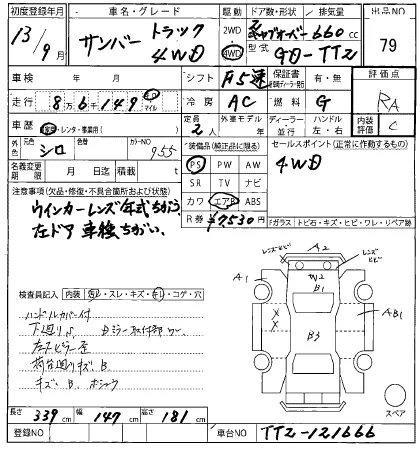 初度登録年月 車名・グレード 駆動 ドア数・形状 排気量 出品NO
13/9月 サンバー トラック 4WD 2WD 4WD 2 キャブオーバー 660cc 79
型式 GD-TT2
車検 年 月 シフト F5速 保証書 有・無 評価点
走行 8万6千149 キロ マイル 冷房 AC 燃料 G RA
車歴 自家用・レンタ・事業用( ) 定員 2人 外車モデル 年 ディーラー・並行 ハンドル 左・右 内装 C
外色 元色 シロ 色替 カラーNO 955 装備品(純正品に限る) セールスポイント(正常に動作するもの)
名義変更期限 月 日迄 積載 t PS PW AW 4WD
注意事項(欠品・修復・不具合箇所および状態) SR TV ナビ
ウインカーレンズ年式ちがう カワ エアB ABS
左ドア 車検ちがい R券 ¥7530 Fガラス トビ石・キズ・ヒビ・ワレ・リペア跡
レンズヒビ A2 レンズヒビ
検査員記入 内装 スレ・キズ・コゲ・穴
W2
B1
A1 AB1
ハンドルカバー付
下廻りS
B3
キズ B
スペア
長さ 339cm 幅 147cm 高さ 181cm
登録NO 車台NO TT2-121666